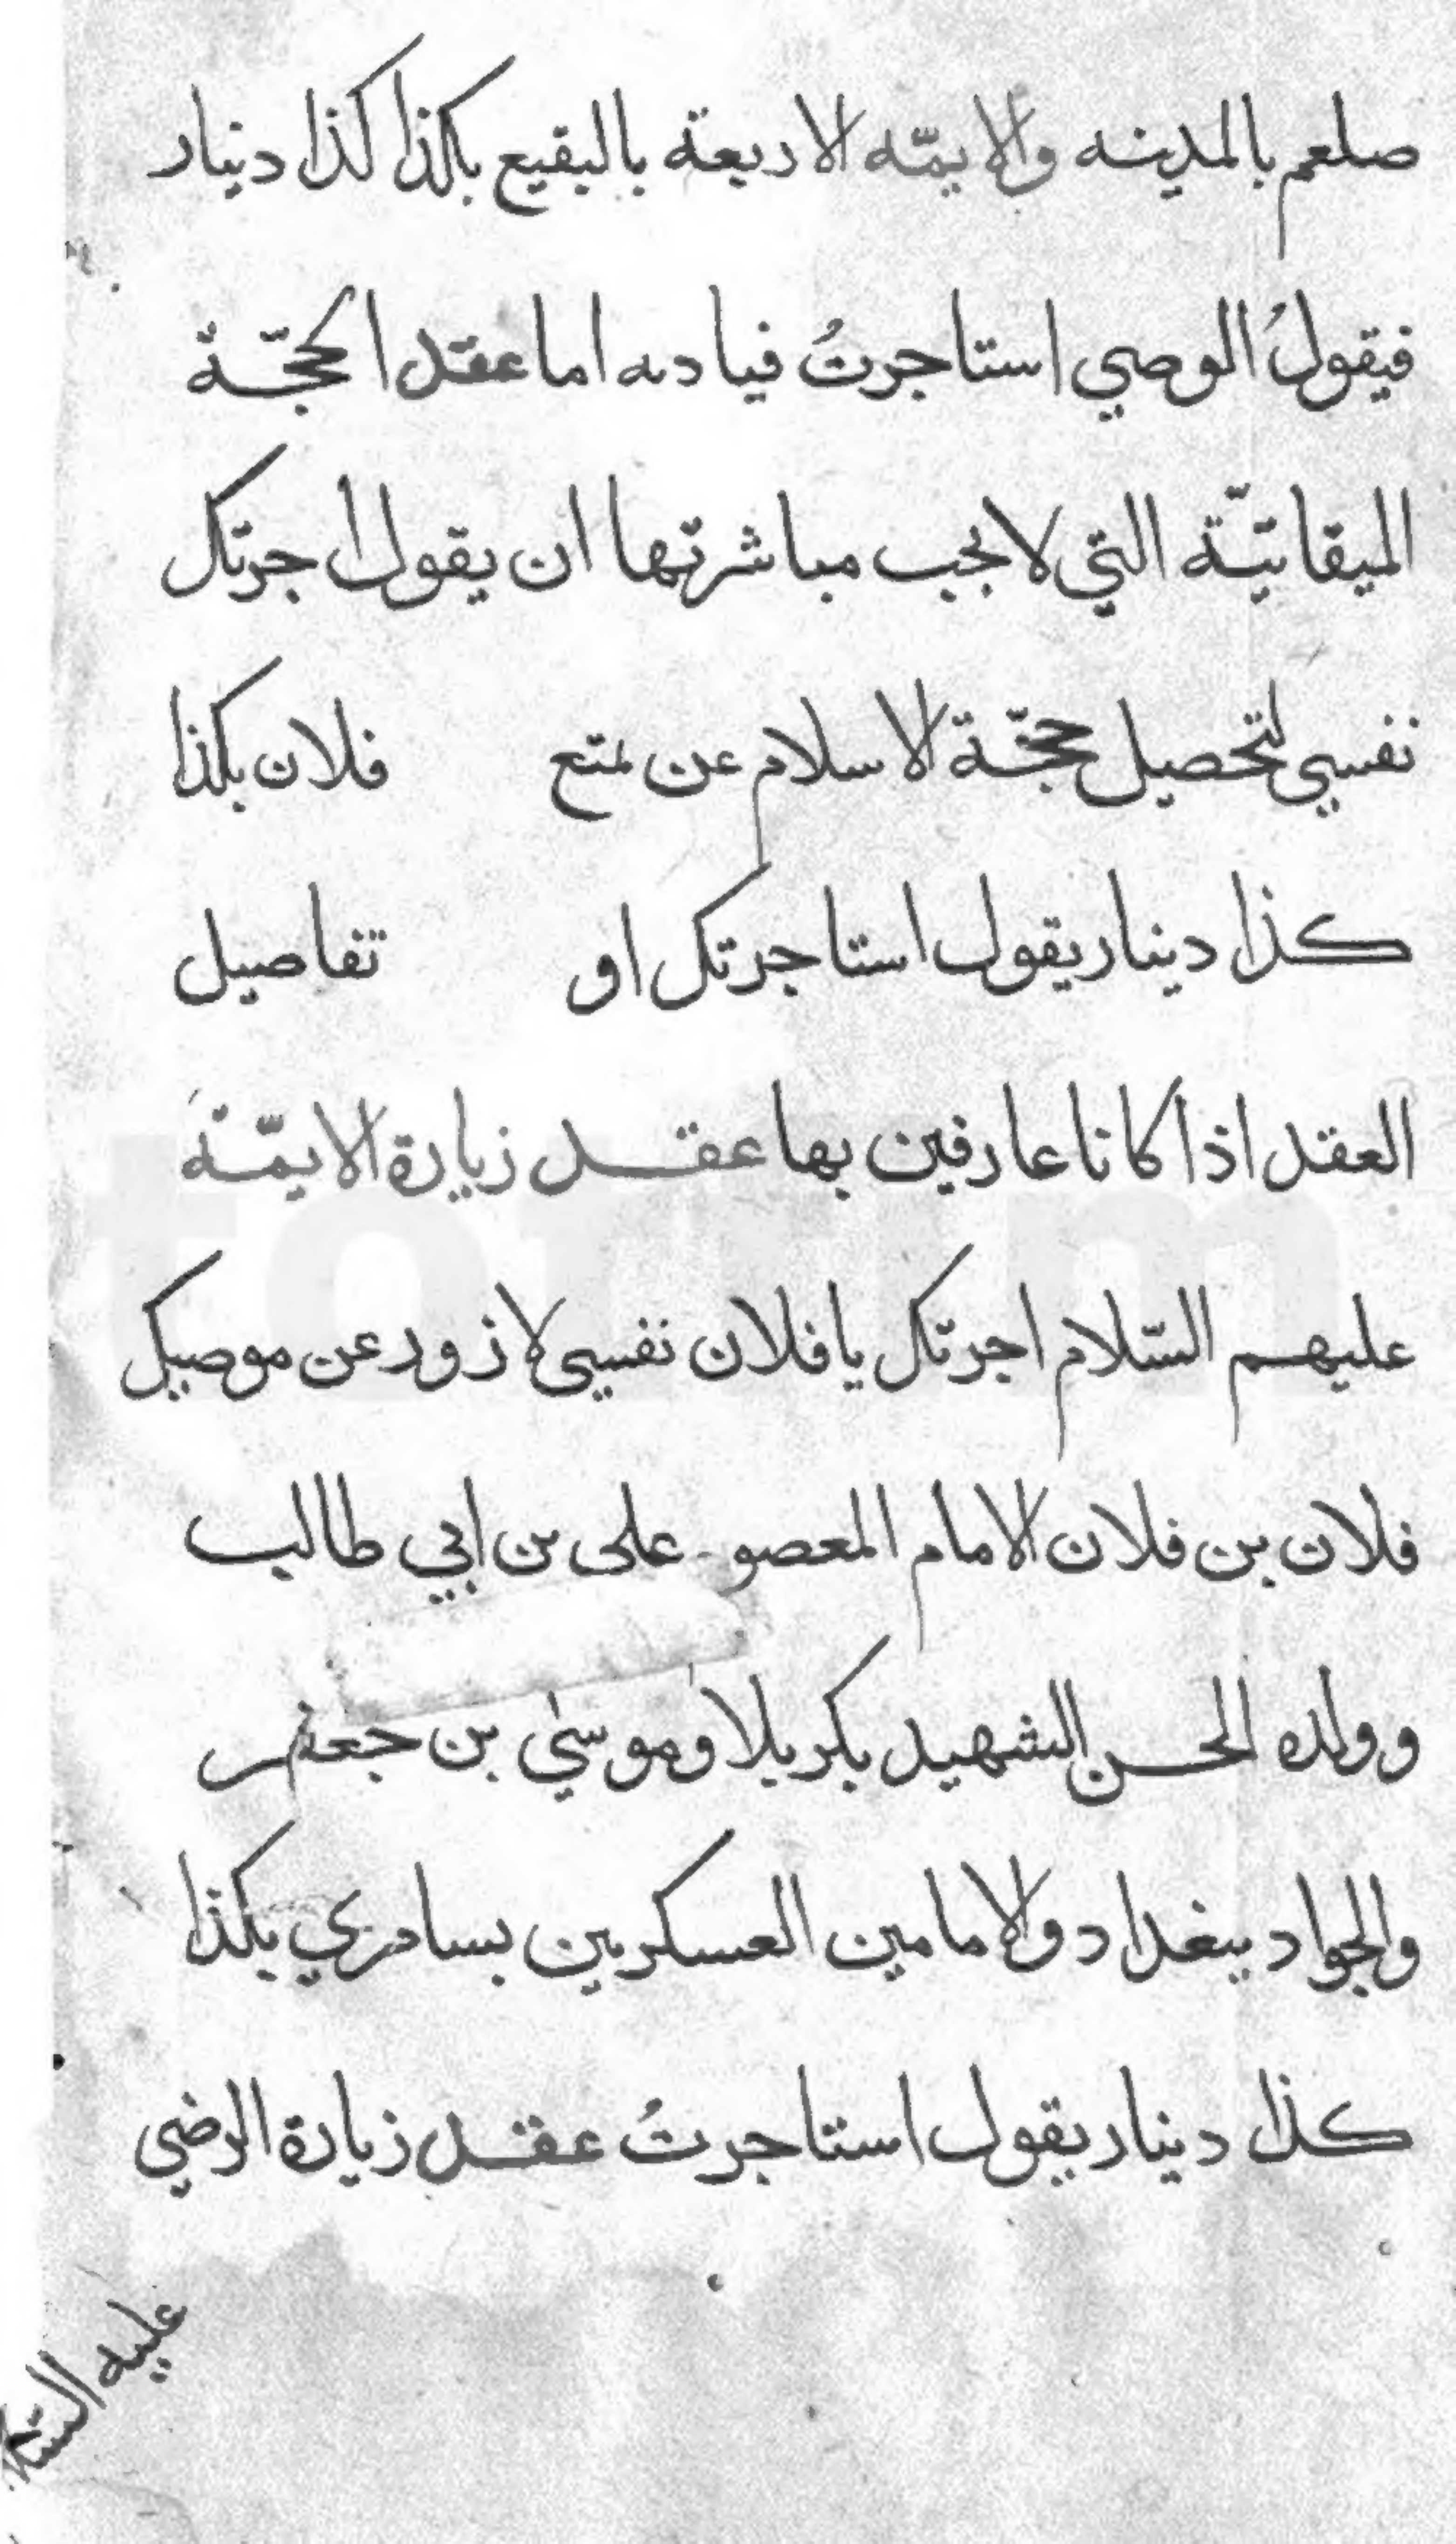 صلعم بالمدينه والايمّه الاربعة بالبقيع بكذا كذا دينار
فيقولُ الوصي استاجرتُ فيا دىه اما عقد الحجّة
الميقاتيّة التي لا يجب مباشرتها ان يقول اجرتك
نفسي لتحصيل حجّة الاسلام عن تمتع فلان بكذا
كذا دينار يقول استاجرتك او تفاصيل
العقد اذا كانا عارفين بها عقد زيارة الايمّة
عليهم السّلام اجرتك يا فلان نفسي لازور عن موصيك
فلان بن فلان الامام المعصو علي بن ابي طالب
وولده الحسن الشهيد بكربلا وموسى بن جعفر
والجواد ببغداد والامامين العسكريين بسامري بكذا
كذا دينار يقول استاجرتُ عقد زيارة الرضي
عليه السّلا